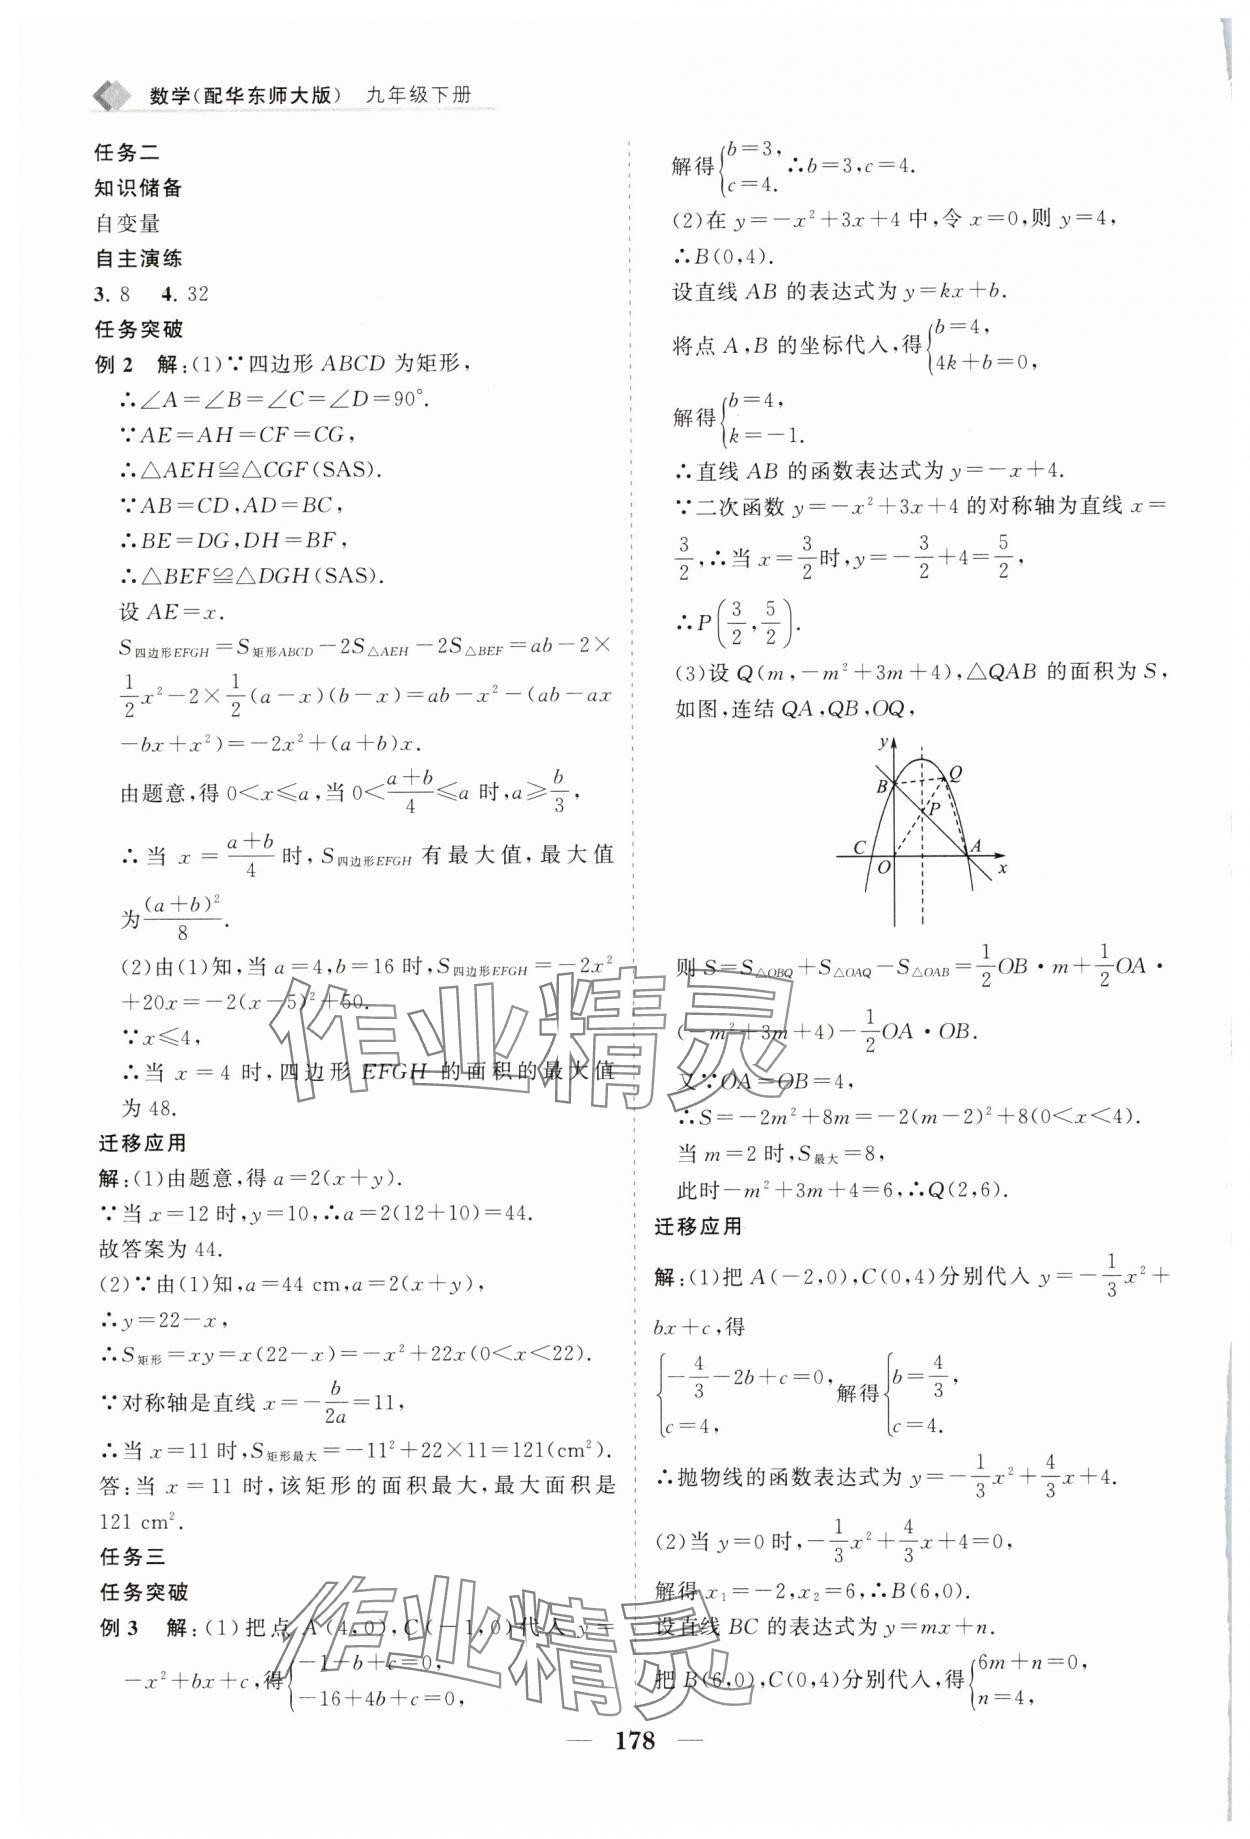 数学(配华东师大版) 九年级下册
任务二
知识储备
自变量
自主演练
3. 8 4. 32
任务突破
例2 解:(1)∵四边形ABCD为矩形,
∴∠A=∠B=∠C=∠D=90°.
∵AE=AH=CF=CG,
∴△AEH≌△CGF(SAS).
∵AB=CD,AD=BC,
∴BE=DG,DH=BF,
∴△BEF≌△DGH(SAS).
设AE=x.
S四边形EFGH=S矩形ABCD-2S△AEH-2S△BEF=ab-2×
1/2x²-2×1/2(a-x)(b-x)=ab-x²-(ab-ax
-bx+x²)=-2x²+(a+b)x.
由题意,得0<x≤a,当0<(a+b)/4≤a时,a≥b/3,
∴当x=(a+b)/4时,S四边形EFGH有最大值,最大值
为(a+b)²/8.
(2)由(1)知,当a=4,b=16时,S四边形EFGH=-2x²
+20x=-2(x-5)²+50.
∵x≤4,
∴当x=4时,四边形EFGH的面积的最大值
为48.
迁移应用
解:(1)由题意,得a=2(x+y).
∵当x=12时,y=10,∴a=2(12+10)=44.
故答案为44.
(2)∵由(1)知,a=44 cm,a=2(x+y),
∴y=22-x,
∴S矩形=xy=x(22-x)=-x²+22x(0<x<22).
∵对称轴是直线x=-b/2a=11,
∴当x=11时,S矩形最大=-11²+22×11=121(cm²).
答:当x=11时,该矩形的面积最大,最大面积是
121 cm².
任务三
任务突破
例3 解:(1)把点A(4,0),C(-1,0)代入y=
-x²+bx+c,得{-1-b+c=0,
-16+4b+c=0,
解得{b=3,
c=4. ∴b=3,c=4.
(2)在y=-x²+3x+4中,令x=0,则y=4,
∴B(0,4).
设直线AB的表达式为y=kx+b.
将点A,B的坐标代入,得{b=4,
4k+b=0,
解得{b=4,
k=-1.
∴直线AB的函数表达式为y=-x+4.
∵二次函数y=-x²+3x+4的对称轴为直线x=
3/2,∴当x=3/2时,y=-3/2+4=5/2,
∴P(3/2,5/2).
(3)设Q(m,-m²+3m+4),△QAB的面积为S,
如图,连结QA,QB,OQ,
y
B
Q
P
C
O
A
x
则S=S△OBQ+S△OAQ-S△OAB=1/2OB·m+1/2OA·
(-m²+3m+4)-1/2OA·OB.
又∵OA=OB=4,
∴S=-2m²+8m=-2(m-2)²+8(0<x<4).
当m=2时,S最大=8,
此时-m²+3m+4=6,∴Q(2,6).
迁移应用
解:(1)把A(-2,0),C(0,4)分别代入y=-1/3x²+
bx+c,得
{-4/3-2b+c=0,
c=4, 解得{b=4/3,
c=4.
∴抛物线的函数表达式为y=-1/3x²+4/3x+4.
(2)当y=0时,-1/3x²+4/3x+4=0,
解得x₁=-2,x₂=6,∴B(6,0).
设直线BC的表达式为y=mx+n.
把B(6,0),C(0,4)分别代入,得{6m+n=0,
n=4,
作业精灵
作业精灵
— 178 —